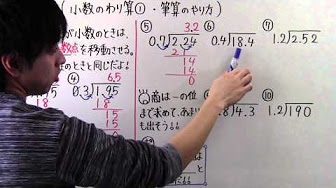 (小数のわり算①・筆算のやり方)
小数のときは、
数点を移動させる。
ときと同じだよ!
④ 6.5
0.3)1.95
⑤ 3.2
0.7)2.24
21
14
14
0
⑥
0.4)18.4
⑦
1.2)2.52
商は一の位
まで求めて、あまり
も出そう!!
8)4.3
1.2)190